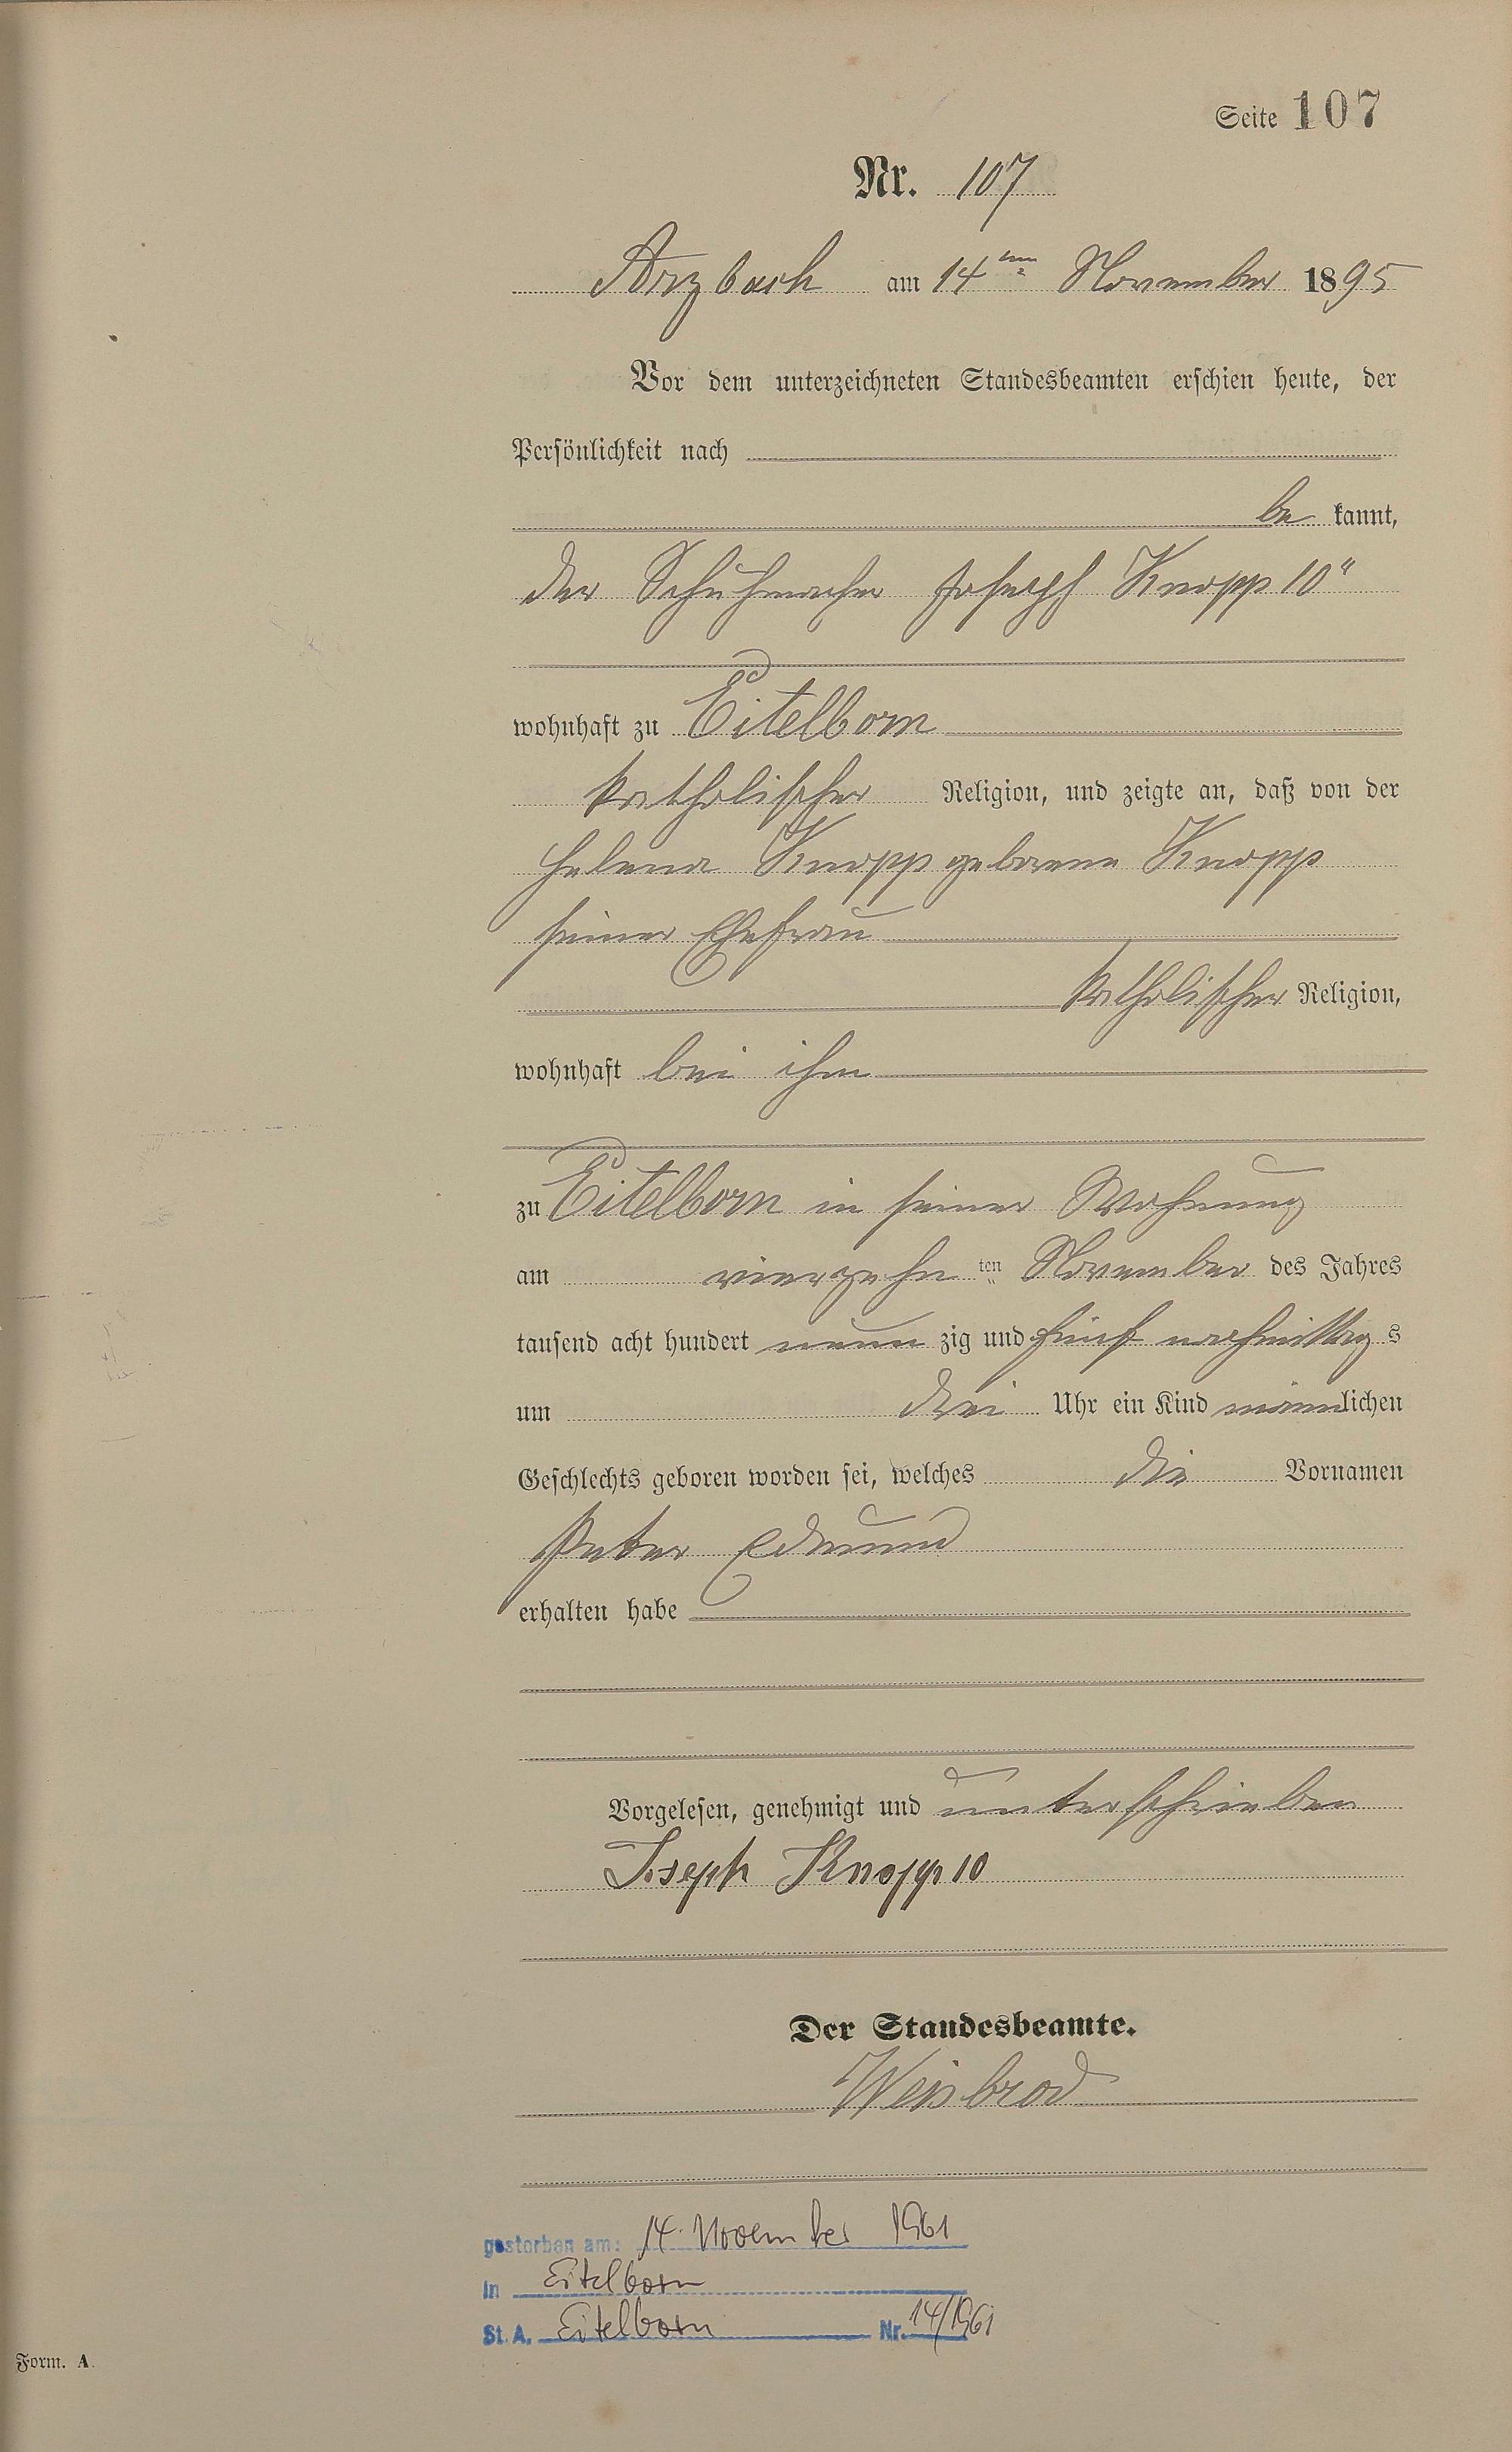 Seite 107
Nr. 107
Arzbach am 14ten November 1895
Vor dem unterzeichneten Standesbeamten erschien heute, der
Persönlichkeit nach
be kannt,
der Schuhmacher Joseph Knopp 10"
wohnhaft zu Eitelborn
katholischer Religion, und zeigte an, daß von der
Helena Knopp geborene Knopp
seiner Ehefrau
katholischer Religion,
wohnhaft bei ihm
zu Eitelborn in seiner Wohnung
am vierzehn ten November des Jahres
tausend acht hundert neun zig und fünf nachmittag s
um drei Uhr ein Kind männlichen
Geschlechts geboren worden sei, welches die Vornamen
Peter Edmund
erhalten habe
Vorgelesen, genehmigt und unterschrieben
Joseph Knopp 10
Der Standesbeamte.
Weisbrod
gestorben am: 14. November 1961
in Eitelborn
St. A. Eitelborn Nr. 14/1961
Form. A.